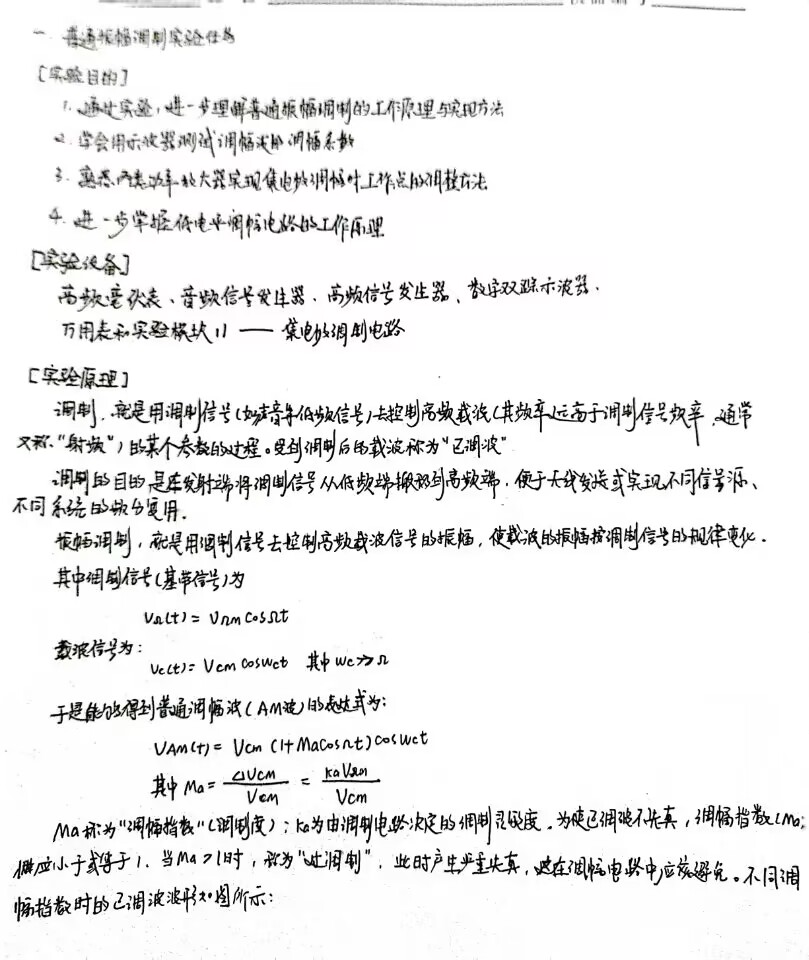 一. 普通振幅调制实验任务
[实验目的]
1. 通过实验,进一步理解普通振幅调制的工作原理与实现方法
2. 学会用示波器测试调幅波的调幅系数
3. 熟悉丙类功率放大器实现集电极调幅时工作点的调整方法
4. 进一步掌握低电平调幅电路的工作原理
[实验设备]
高频毫伏表、音频信号发生器、高频信号发生器、数字双踪示波器、
万用表和实验模块11 —— 集电极调制电路
[实验原理]
调制,就是用调制信号(如声音等低频信号)去控制高频载波(其频率远高于调制信号频率,通常
又称“射频”)的某个参数的过程。受到调制后的载波称为“已调波”
调制的目的是在发射端将调制信号从低频端搬移到高频端,便于天线发送或实现不同信号源、
不同系统的频分复用.
振幅调制,就是用调制信号去控制高频载波信号的振幅,使载波的振幅按调制信号的规律变化.
其中调制信号(基带信号)为
VΩ(t) = VΩm cosΩt
载波信号为:
Vc(t) = Vcm coswct 其中 wc≫Ω
于是能够得到普通调幅波(AM波)的表达式为:
VAM(t) = Vcm (1+MacosΩt)coswct
其中 Ma = ΔVcm/Vcm = kaVΩm/Vcm
Ma称为“调幅指数”(调制度);ka为由调制电路决定的调制灵敏度.为使已调波不失真,调幅指数(Ma)
应小于或等于1.当Ma>1时,称为“过调制”,此时产生严重失真,这在调幅电路中应该避免。不同调
幅指数时的已调波波形如图所示: